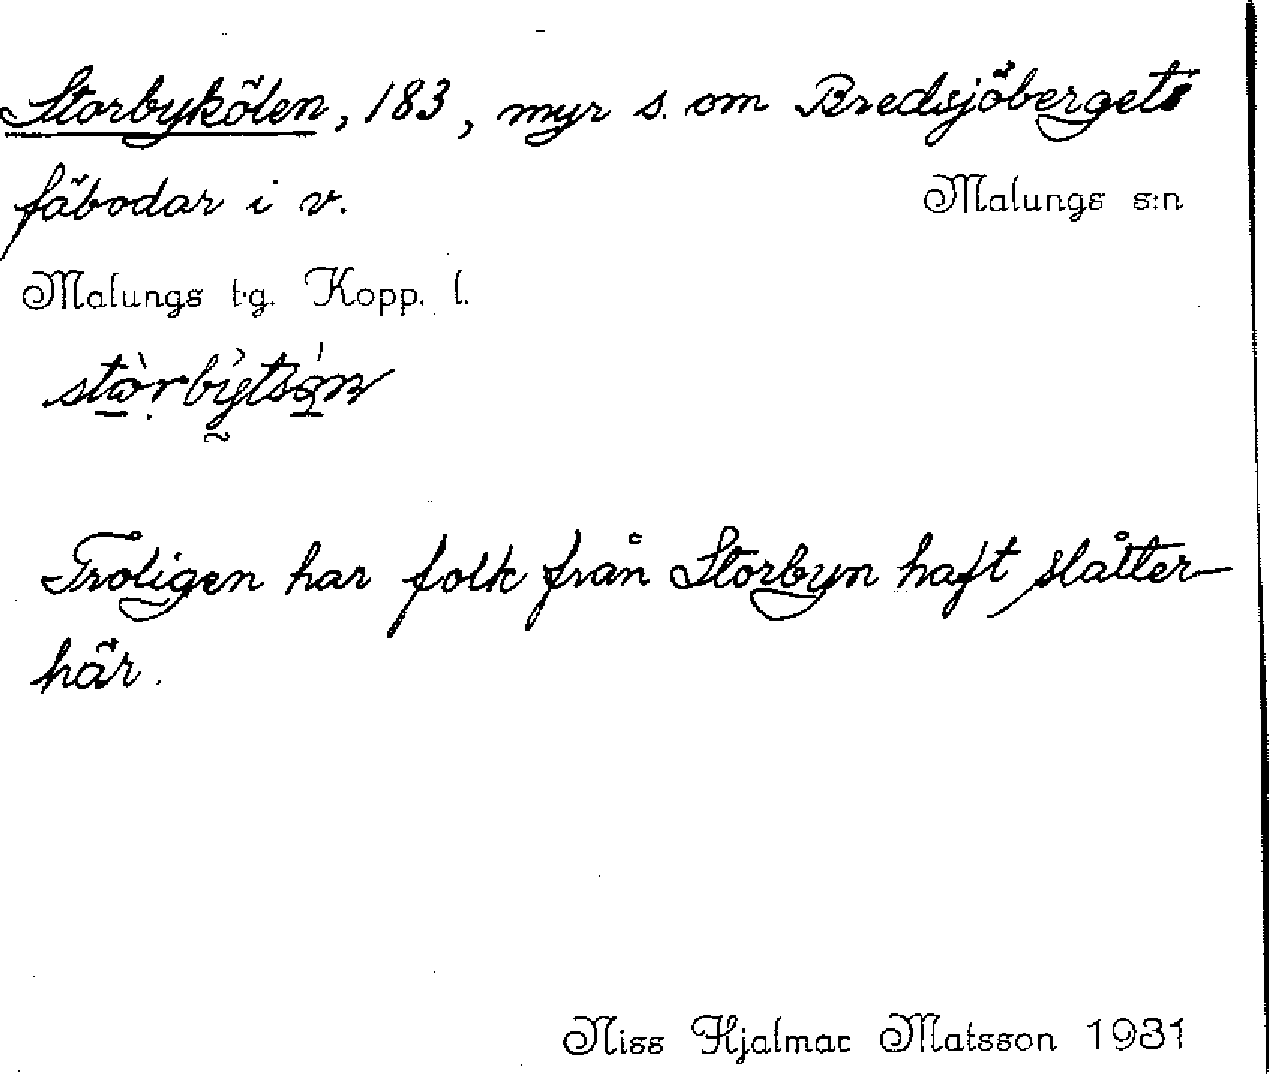 Storbykölen, 183, myr s. om Bredsjöbergets
fäbodar i v.
Malungs s:n
Malungs tg. Kopp. l.
Troligen har folk från Storbyn haft slåtter
här.
Niss Hjalmar Matsson 1981